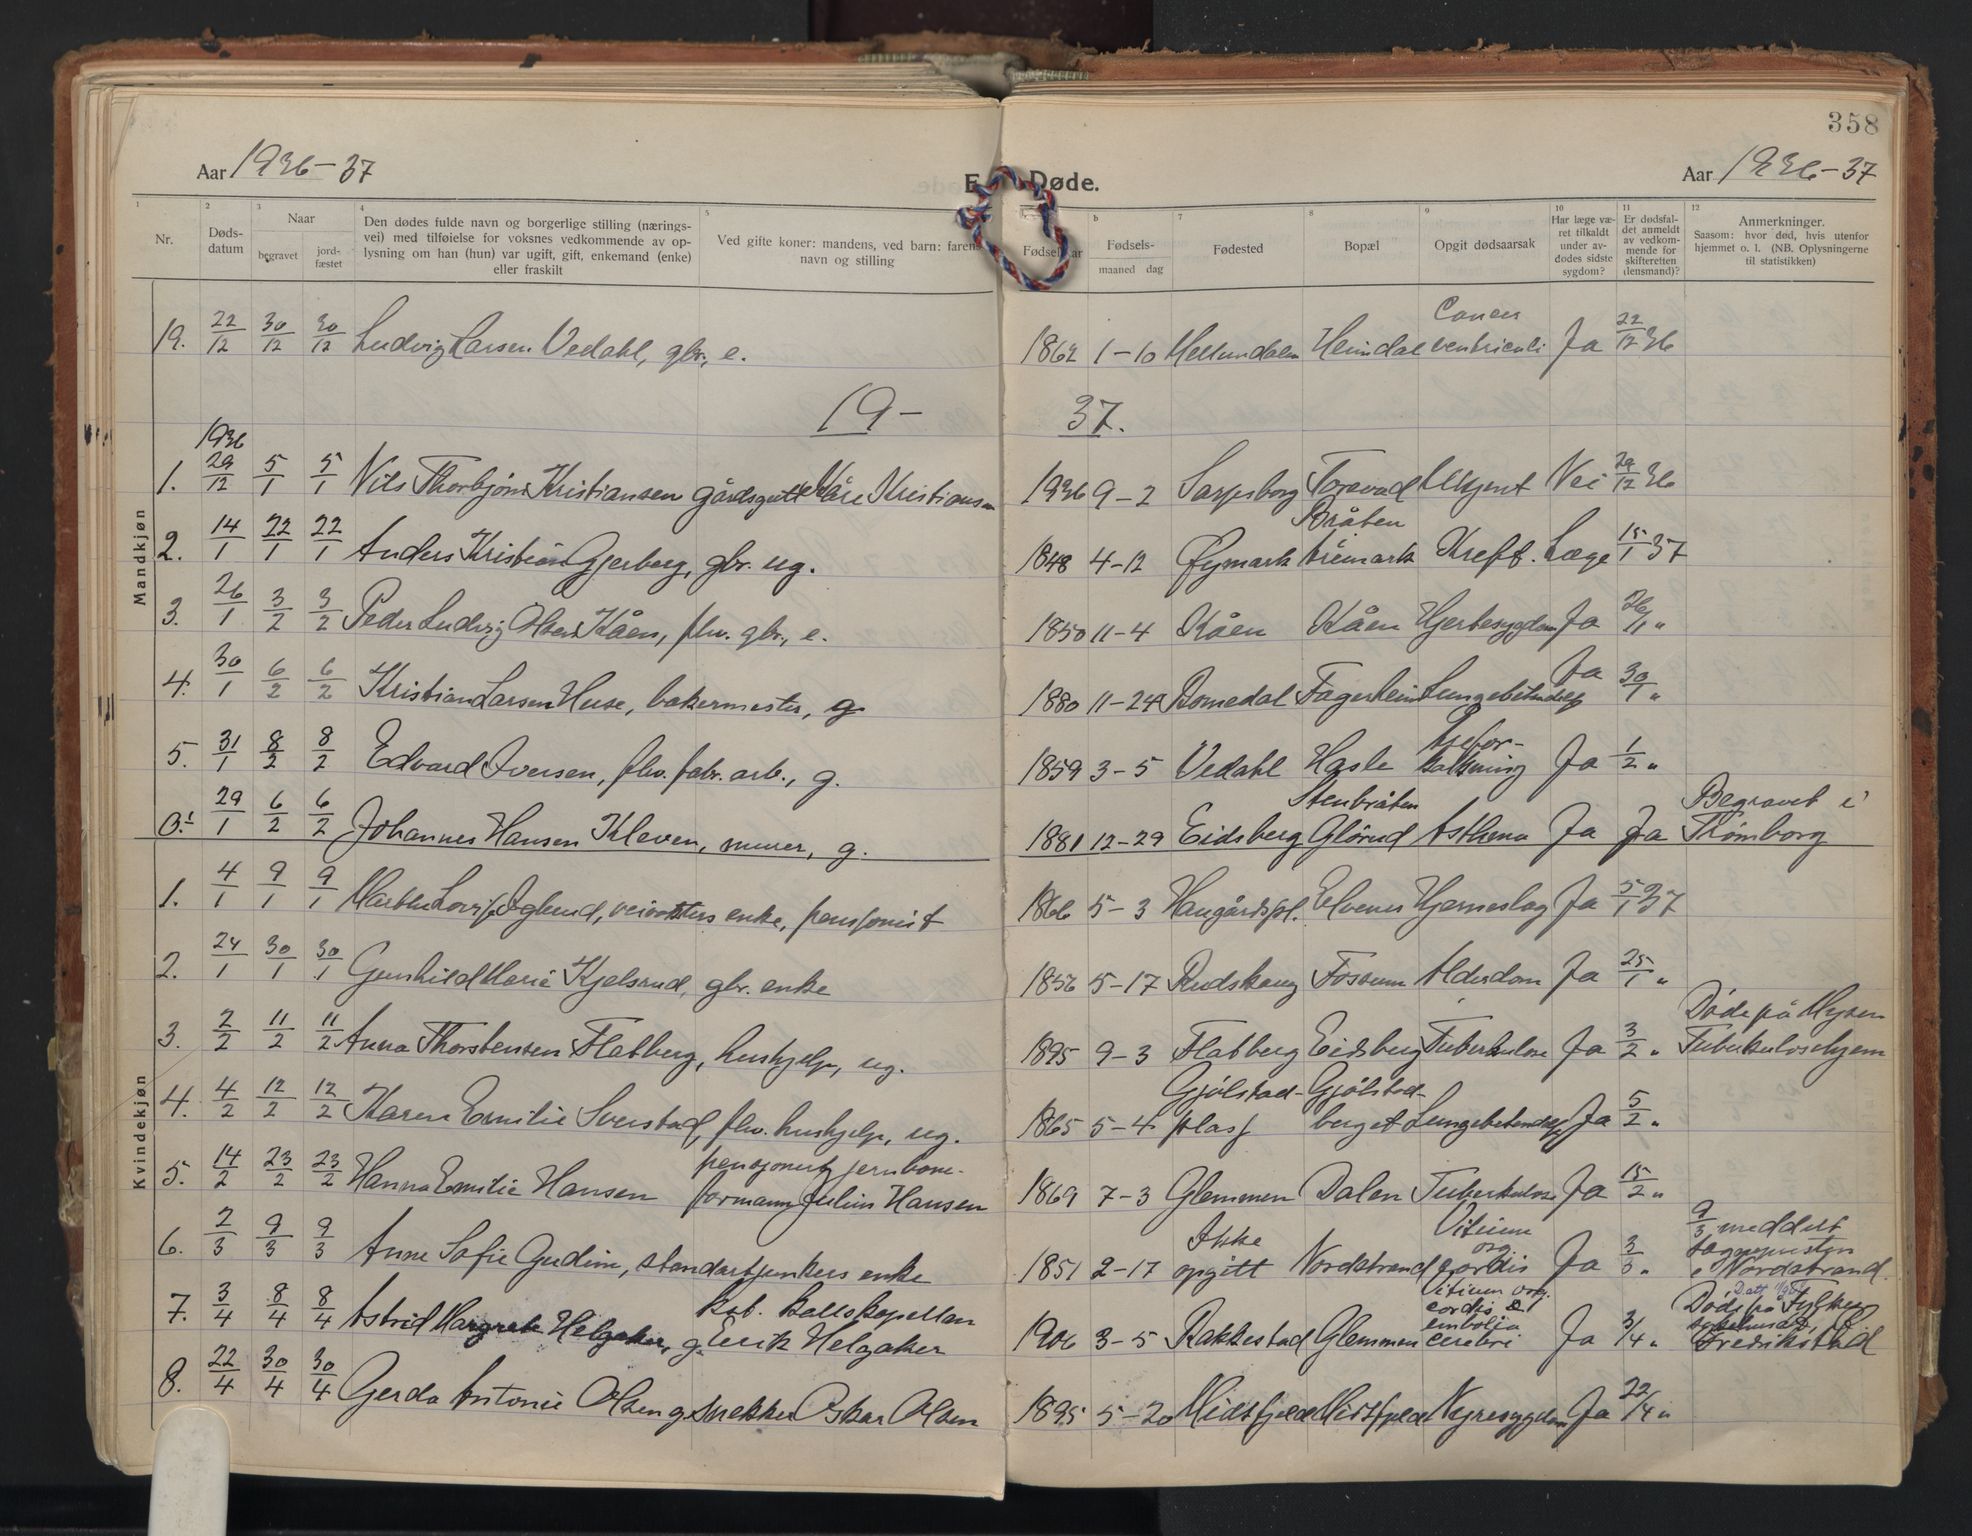 358
Aar 1936-37
E. Døde.
Aar 1936-37
1 2 3 4 5 6 7 8 9 10 11 12
Nr.
Døds-
datum
Naar
begravet
jord-
fæstet
Den dødes fulde navn og borgerlige stilling (nærings-
vei) med tilføielse for voksnes vedkommende av op-
lysning om han (hun) var ugift, gift, enkemand (enke)
eller fraskilt
Ved gifte koner: mandens, ved barn: farens
navn og stilling
Fødselsaar
b
Fødsels-
maaned dag
Fødested
Bopæl
Opgit dødsaarsak
Har læge væ-
ret tilkaldt
under av-
dødes sidste
sygdom?
Er dødsfal-
det anmeldt
av vedkom-
mende for
skifteretten
(lensmand)?
Anmerkninger.
Saasom: hvor død, hvis utenfor
hjemmet o. l. (NB. Oplysningerne
til statistikken)
Mandkjøn
19. 22/12 30/12 30/12 Ludvig Larsen Vedahl, gbr., e. 1862 1-10 Heimdal Cancer ventriculi Ja 22/12 36
19- 37.
1936
1. 29/12 5/1 5/1 Nils Thorbjørn Kristiansen gårdsgutt Kåre Kristiansen 1936 9-2 Sarpsborg Torevad Ukjent Nei 29/12 36
2. 14/1 22/1 22/1 Anders Kristian Gjerberg, gbr. ug. 1848 4-12 Øymark Bråten Kreft. Læge 15/1 37
3. 26/1 3/2 3/2 Peder Ludvig Olsen Kåen, fhv. gbr., e. 1850 11-4 Kåen Kåen Hjertesygdom Ja 26/1 "
4. 30/1 6/2 6/2 Kristian Larsen Huse, bakermester, g. 1880 11-24 Romedal Fagerheim Lungebetendelse Ja 30/1 "
5. 31/1 8/2 8/2 Edvard Iversen, fhv. fabr. arb., g. 1859 3-5 Vedahl Hasle Åreforkalkning Ja 1/2 "
0.1 29/1 6/2 6/2 Johannes Hansen Kleven, murer, g. 1881 12-29 Eidsberg Stenbråten Glørud Asthma Ja Ja Begravet i Trømborg
Kvindekjøn
1. 4/1 9/1 9/1 enke, pensjonist 1866 5-3 Haugårdspl. Elvenes Hjerneslag Ja 5/1 37
2. 24/1 30/1 30/1 Gunhild Marie Kjelsrud, gbr. enke 1856 5-17 Rudskaug Fossum Alderdom Ja 25/1 "
3. 2/2 11/2 11/2 Anna Thorstensen Flatberg, hushjelp, ug. 1895 9-3 Flatberg Eidsberg Tuberkulose Ja 3/2 " Døde på Mysen Tuberkulosehjem
4. 4/2 12/2 12/2 Karen Emilie Sverstad, fhv. hushjelp, ug. 1865 5-4 Gjølstad-plass Gjølstad-berget Lungebetendelse Ja 5/2 "
5. 14/2 23/2 23/2 Hanna Emilie Hansen pensjonert jernbane-formann Julius Hansen 1869 7-3 Glemmen Dalen Tuberkulose Ja 15/2 "
6. 2/3 9/3 9/3 Anne Sofie Gudim, standartjunkers enke 1851 2-17 Ikke opgitt Nordstrand Vitium org. cordis Ja 3/3 " 9/3 meddelt sogneprsten i Nordstrand.
7. 3/4 8/4 8/4 Astrid Margrete Helgaker, g. res. kallskapellan Erik Helgaker 1906 3-5 Rakkestad Glemmen Vitium org. cordis & embolia cerebri Ja 3/4 " Døde på Fylkes sykehuset, Fredrikstad
8. 22/4 30/4 30/4 Gerda Antonie Olsen g. snekker Oskar Olsen 1895 5-20 Midtfjeld Midtfjeld Nyresygdom Ja 22/4 "